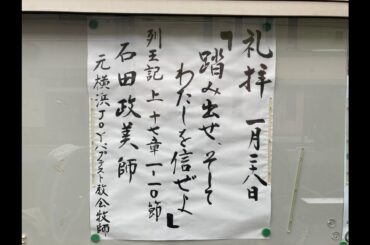 礼拝 一月二八日
「踏み出せ、そして
わたしを信ぜよ」
列王記上十七章一-一〇節
石田政美師
元横浜JOYバプテスト教会牧師